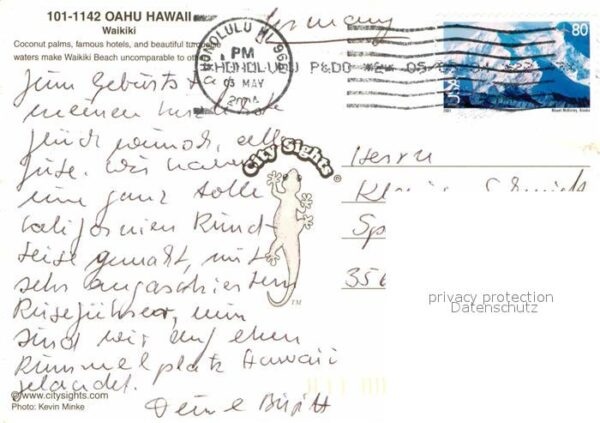 101-1142 OAHU HAWAII
Waikiki
Coconut palms, famous hotels, and beautiful
waters make Waikiki Beach uncomparable to
Germany
HONOLULU HI 968
PM
03 MAY
HONOLULU P&DC
80
USA
2001
Mount McKinley, Alaska
Zum Geburtstag
meinen
Glückwunsch, alles
Gute. Wir haben
eine ganz tolle
Kalifornien Rund-
reise gemacht, mit
sehr engagiertem
Reiseführer, nun
sind wir auf dem
Rummelplatz Hawaii
gelandet.
Deine Birgitt
City Sights
®
TM
Herrn
Sp
356
privacy protection
Datenschutz
© www.citysights.com
Photo: Kevin Minke